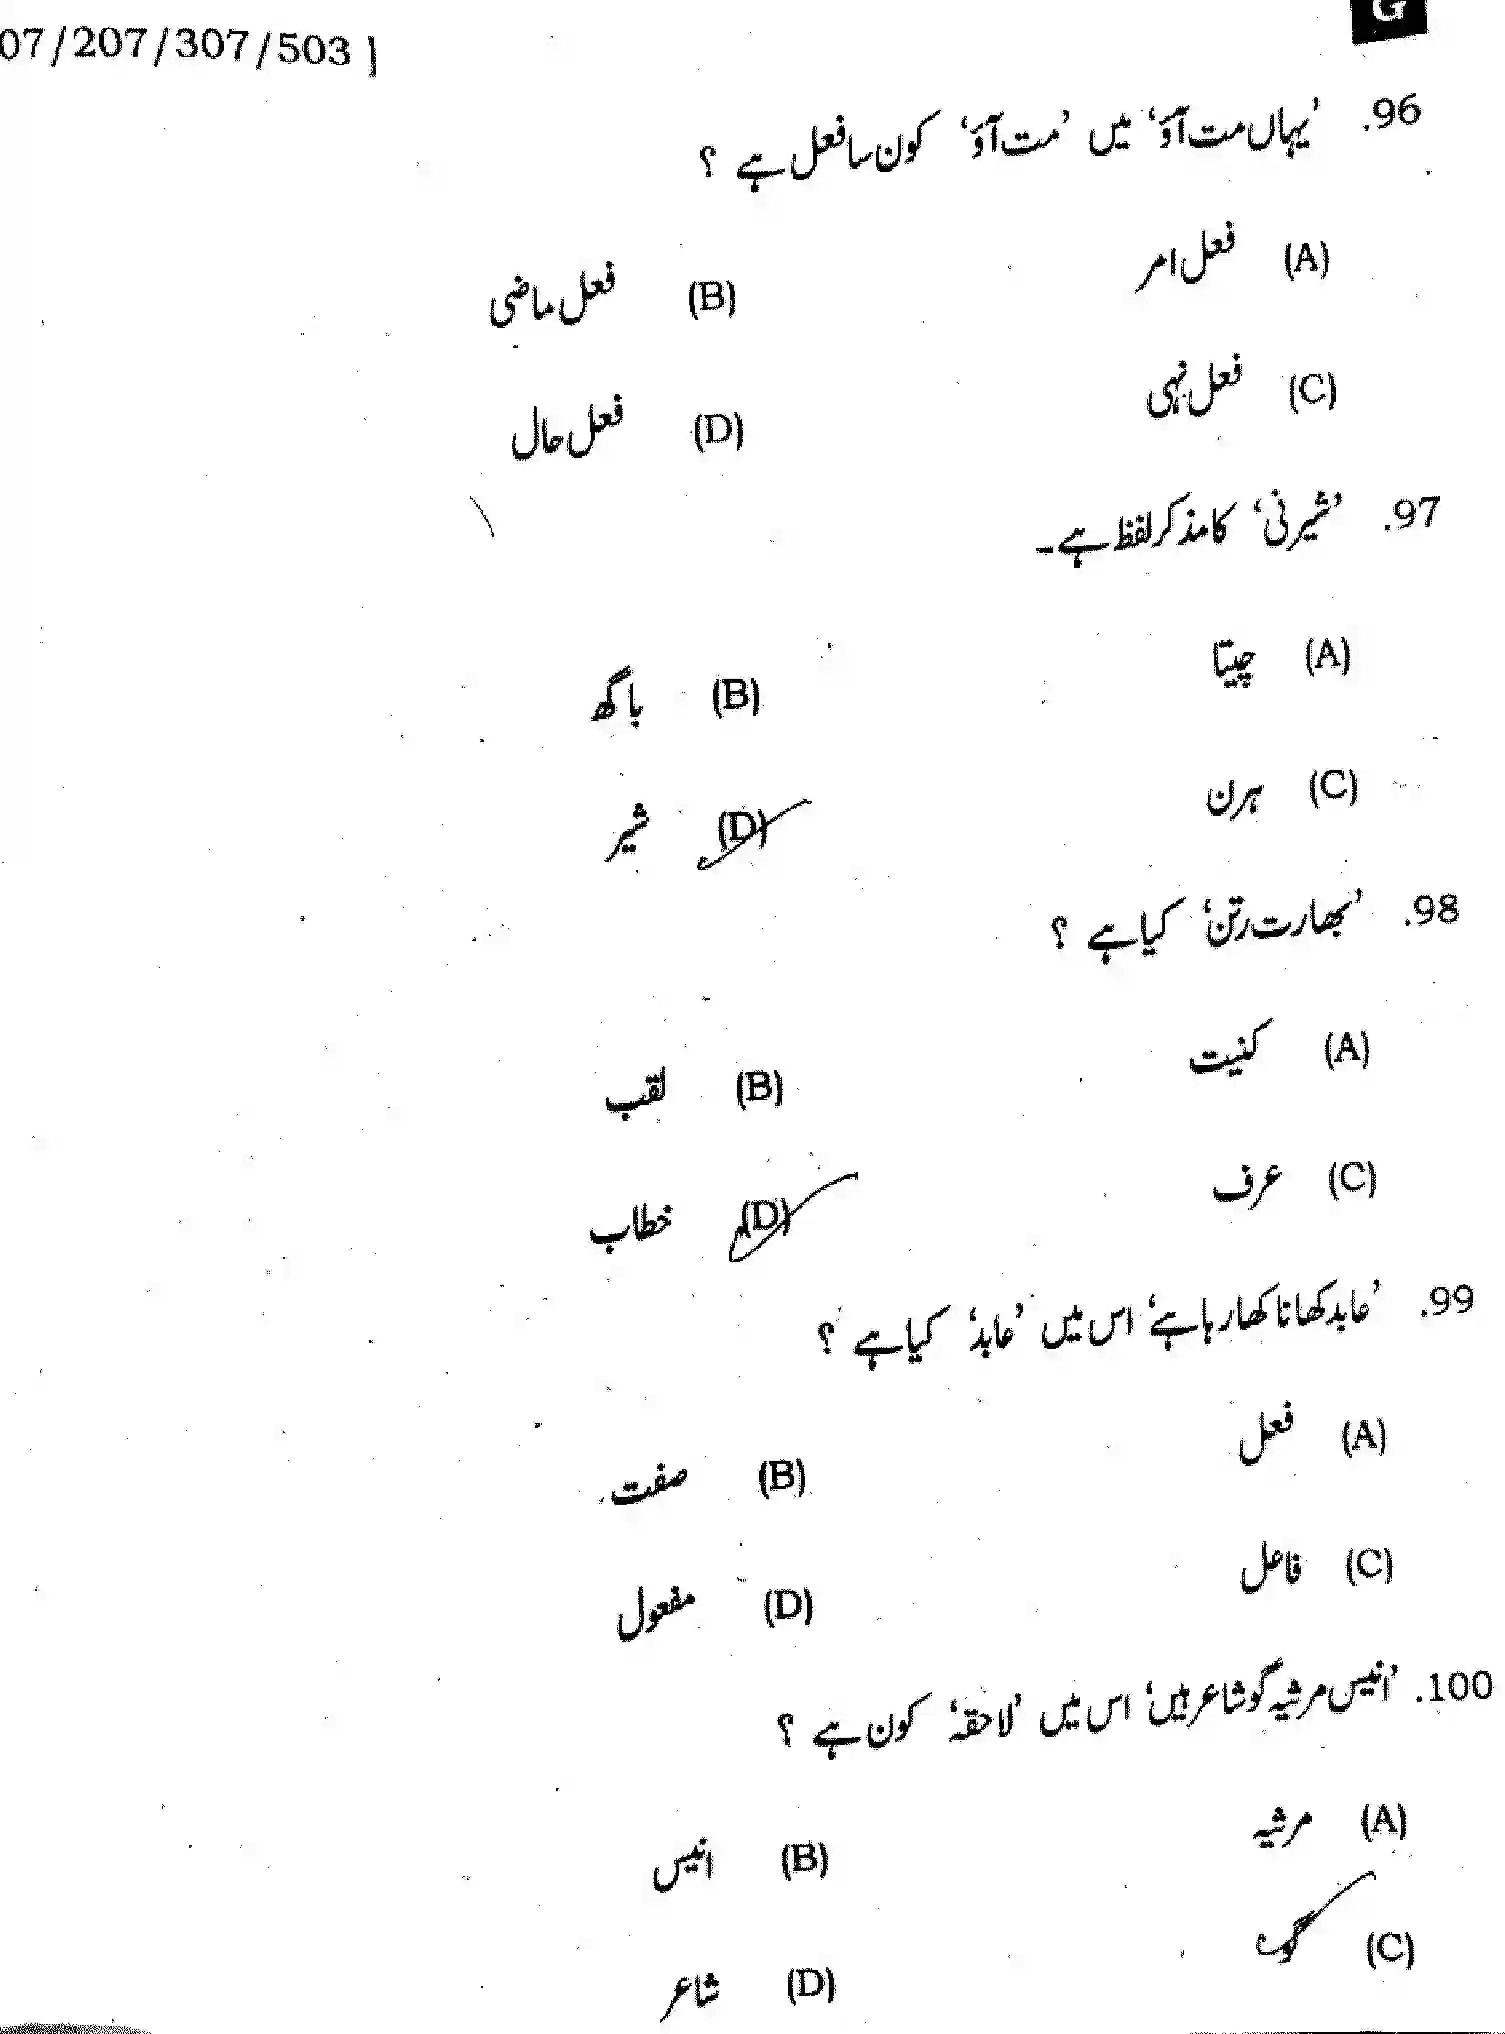 07/207/307/503 ]
G
96. ’یہاں مت آؤ‘ میں ’مت آؤ‘ کون سا فعل ہے ؟
(A) فعل امر (B) فعل ماضی
(C) فعل نہی (D) فعل حال
97. ’شیرنی‘ کا مذکر لفظ ہے۔
(A) چیتا (B) باگھ
(C) ہرن (D) شیر
98. ’بھارت رتن‘ کیا ہے ؟
(A) کنیت (B) لقب
(C) عرف (D) خطاب
99. ’عابد کھانا کھا رہا ہے‘ اس میں ’عابد‘ کیا ہے ؟
(A) فعل (B) صفت
(C) فاعل (D) مفعول
100. ’انیس مرثیہ گو شاعر ہیں‘ اس میں ’لاحقہ‘ کون ہے ؟
(A) مرثیہ (B) انیس
(C) گو (D) شاعر